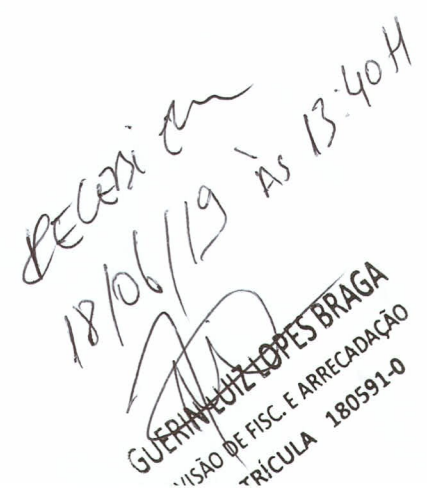 RECEBI em
18/06/19 ÀS 13:40H
GUERIN LUIZ LOPES BRAGA
VISÃO DE FISC. E ARRECADAÇÃO
TRÍCULA 180591-0